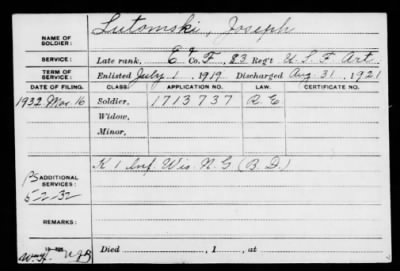 NAME OF SOLDIER: Lutomski, Joseph
SERVICE: Late rank, Co. F, 83 Reg't U S F Art.
TERM OF SERVICE: Enlisted July 1, 1919. Discharged Aug. 31, 1921
DATE OF FILING. CLASS. APPLICATION NO. LAW. CERTIFICATE NO.
1932 Mar. 16 Soldier, 1713737
Widow,
Minor,
ADDITIONAL SERVICES: K 1 Inf. Wis N. G (B. D.)
5-2-32
REMARKS:
Died , 1 , at